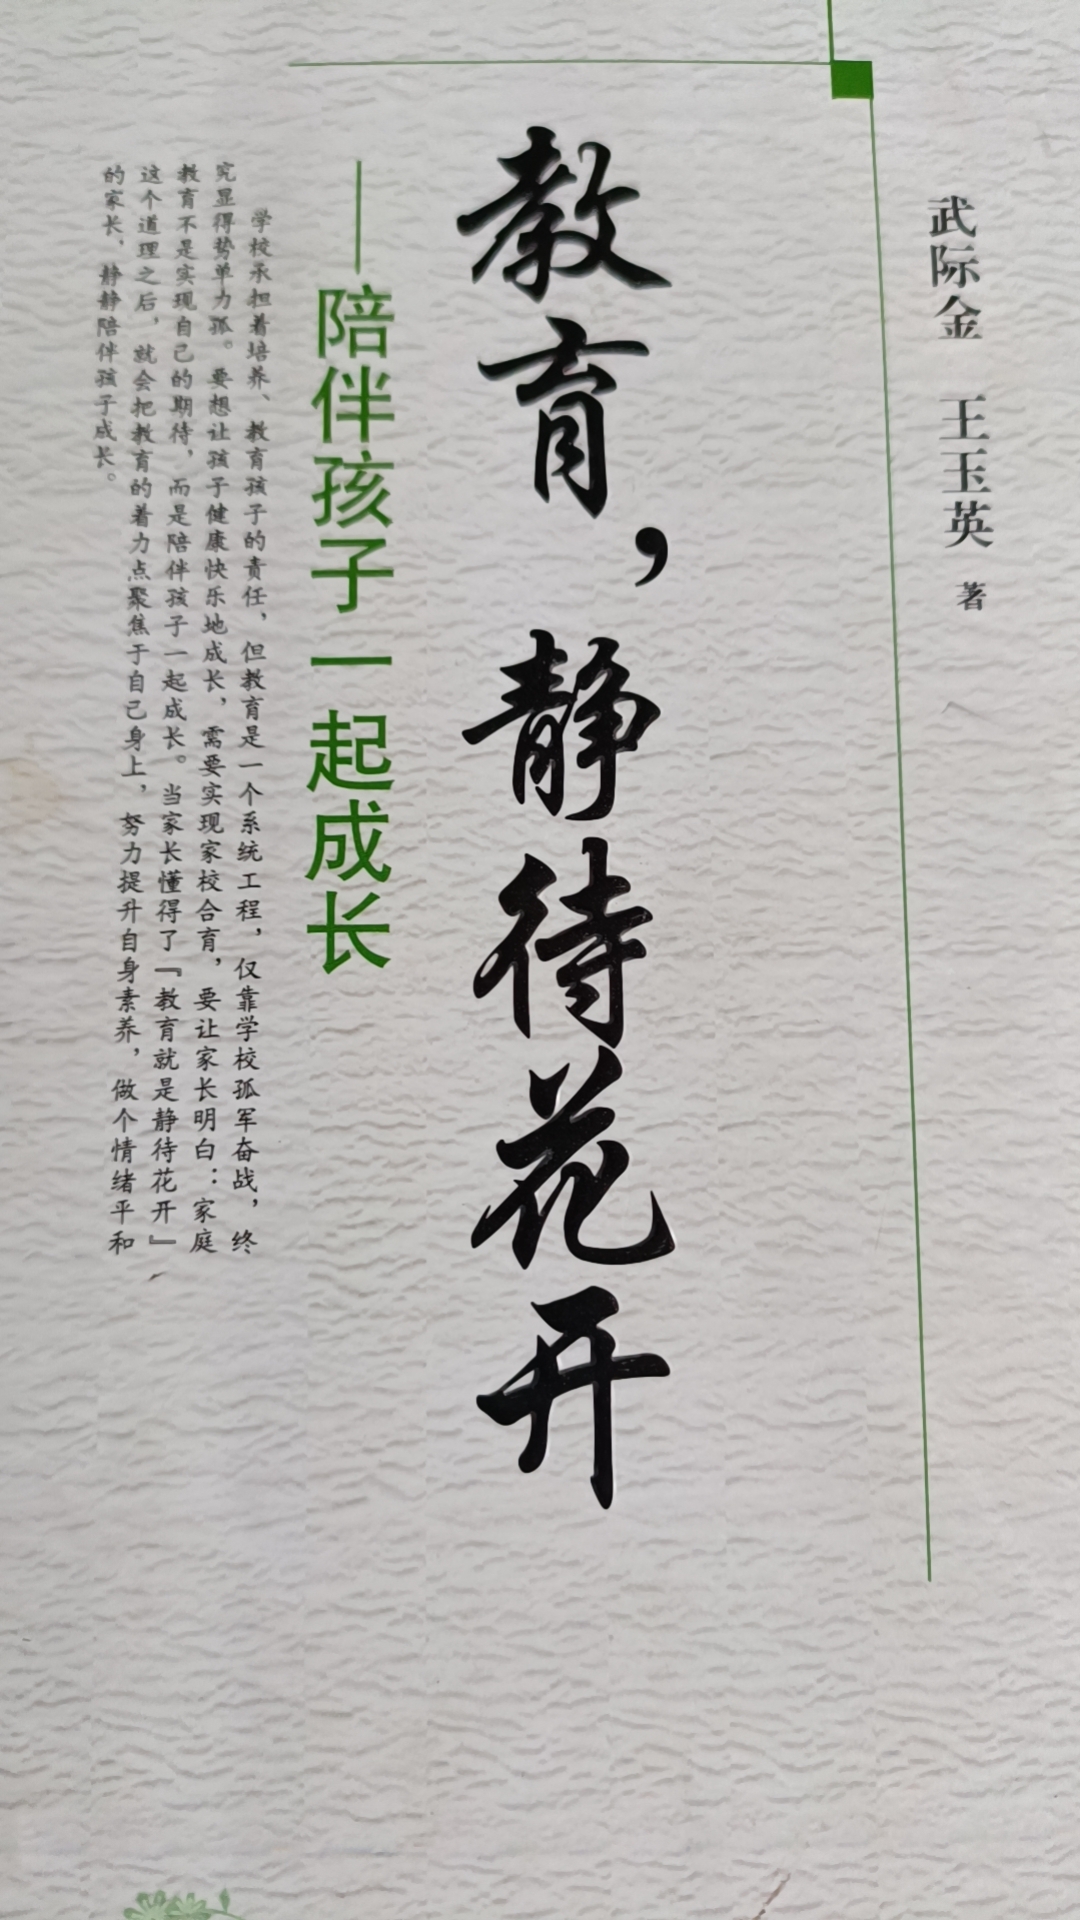 武际金 王玉英 著
教育，静待花开
——陪伴孩子一起成长
学校承担着培养、教育孩子的责任，但教育是一个系统工程，仅靠学校孤军奋战，终
究显得势单力孤。要想让孩子健康快乐地成长，需要实现家校合育，要让家长明白：家庭
教育不是实现自己的期待，而是陪伴孩子一起成长。当家长懂得了『教育就是静待花开』
这个道理之后，就会把教育的着力点聚焦于自己身上，努力提升自身素养，做个情绪平和
的家长，静静陪伴孩子成长。